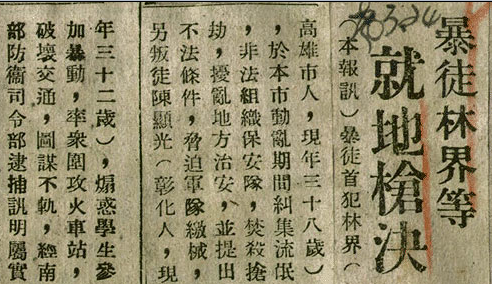 暴徒林界等
就地槍決
（本報訊）暴徒首犯林界（
高雄市人，現年三十八歲）
，於本市動亂期間糾集流氓
，非法組織保安隊，焚殺搶
劫，擾亂地方治安，並提出
不法條件，脅迫軍隊繳械，
另叛徒陳顯光（彰化人，現
年三十二歲），煽惑學生參
加暴動，率衆圍攻火車站，
破壞交通，圖謀不軌，經南
部防衞司令部逮捕訊明屬實